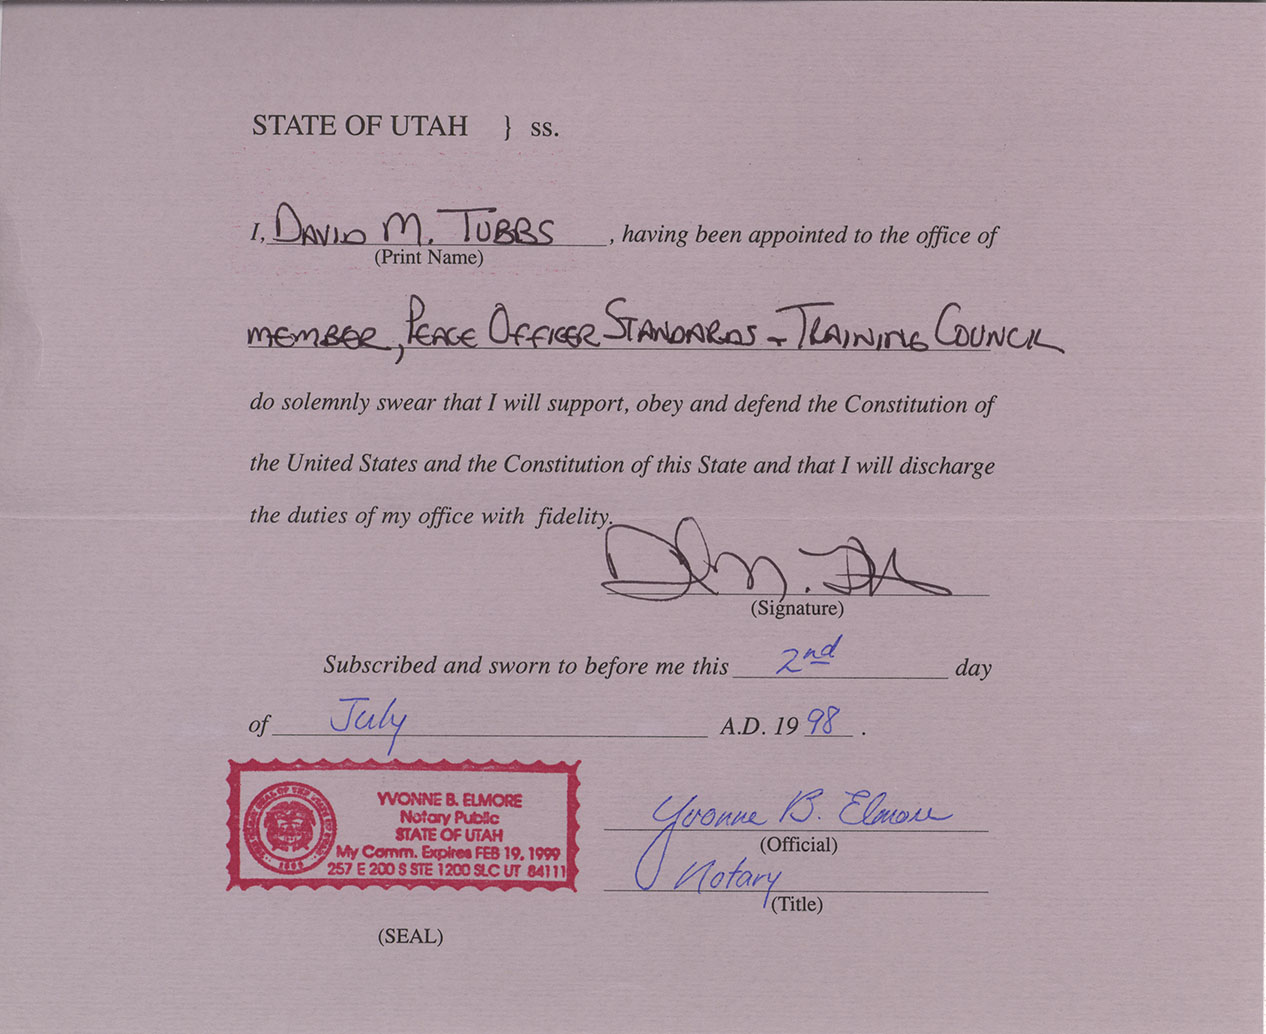 STATE OF UTAH } ss.
I, DAVID M. TUBBS, having been appointed to the office of
(Print Name)
MEMBER, PEACE OFFICER STANDARDS + TRAINING COUNCIL
do solemnly swear that I will support, obey and defend the Constitution of
the United States and the Constitution of this State and that I will discharge
the duties of my office with fidelity.
(Signature)
Subscribed and sworn to before me this 2nd day
of July A.D. 1998.
YVONNE B. ELMORE
Notary Public
STATE OF UTAH
My Comm. Expires FEB 19, 1999
257 E 200 S STE 1200 SLC UT 84111
Yvonne B. Elmore
(Official)
Notary
(Title)
(SEAL)